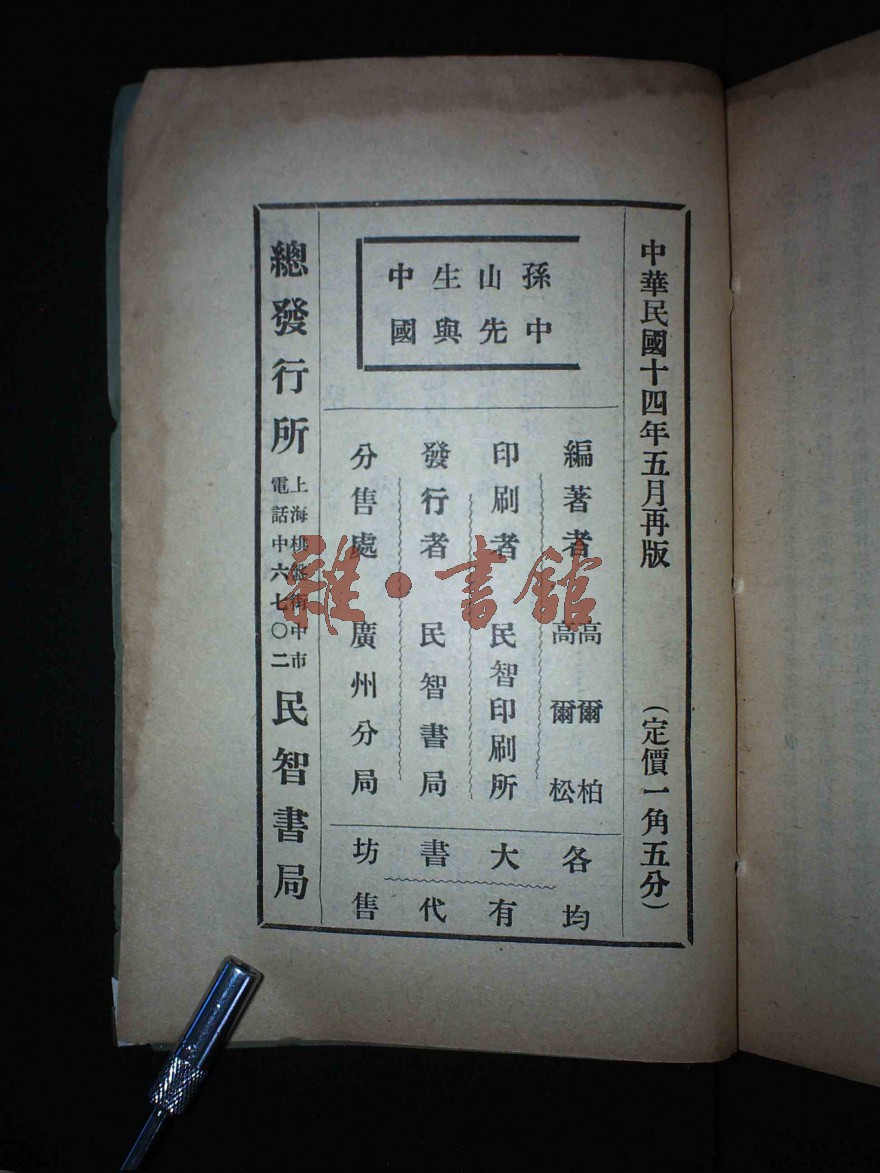 中華民國十四年五月再版
（定價一角五分）
孫中
山先
生與
中國
編著者 高爾柏
高爾松
印刷者 民智印刷所
發行者 民智書局
分售處 廣州分局
各大書坊
均有代售
總發行所
上海棋盤街中市
電話中六七〇二
民智書局
雜·書館